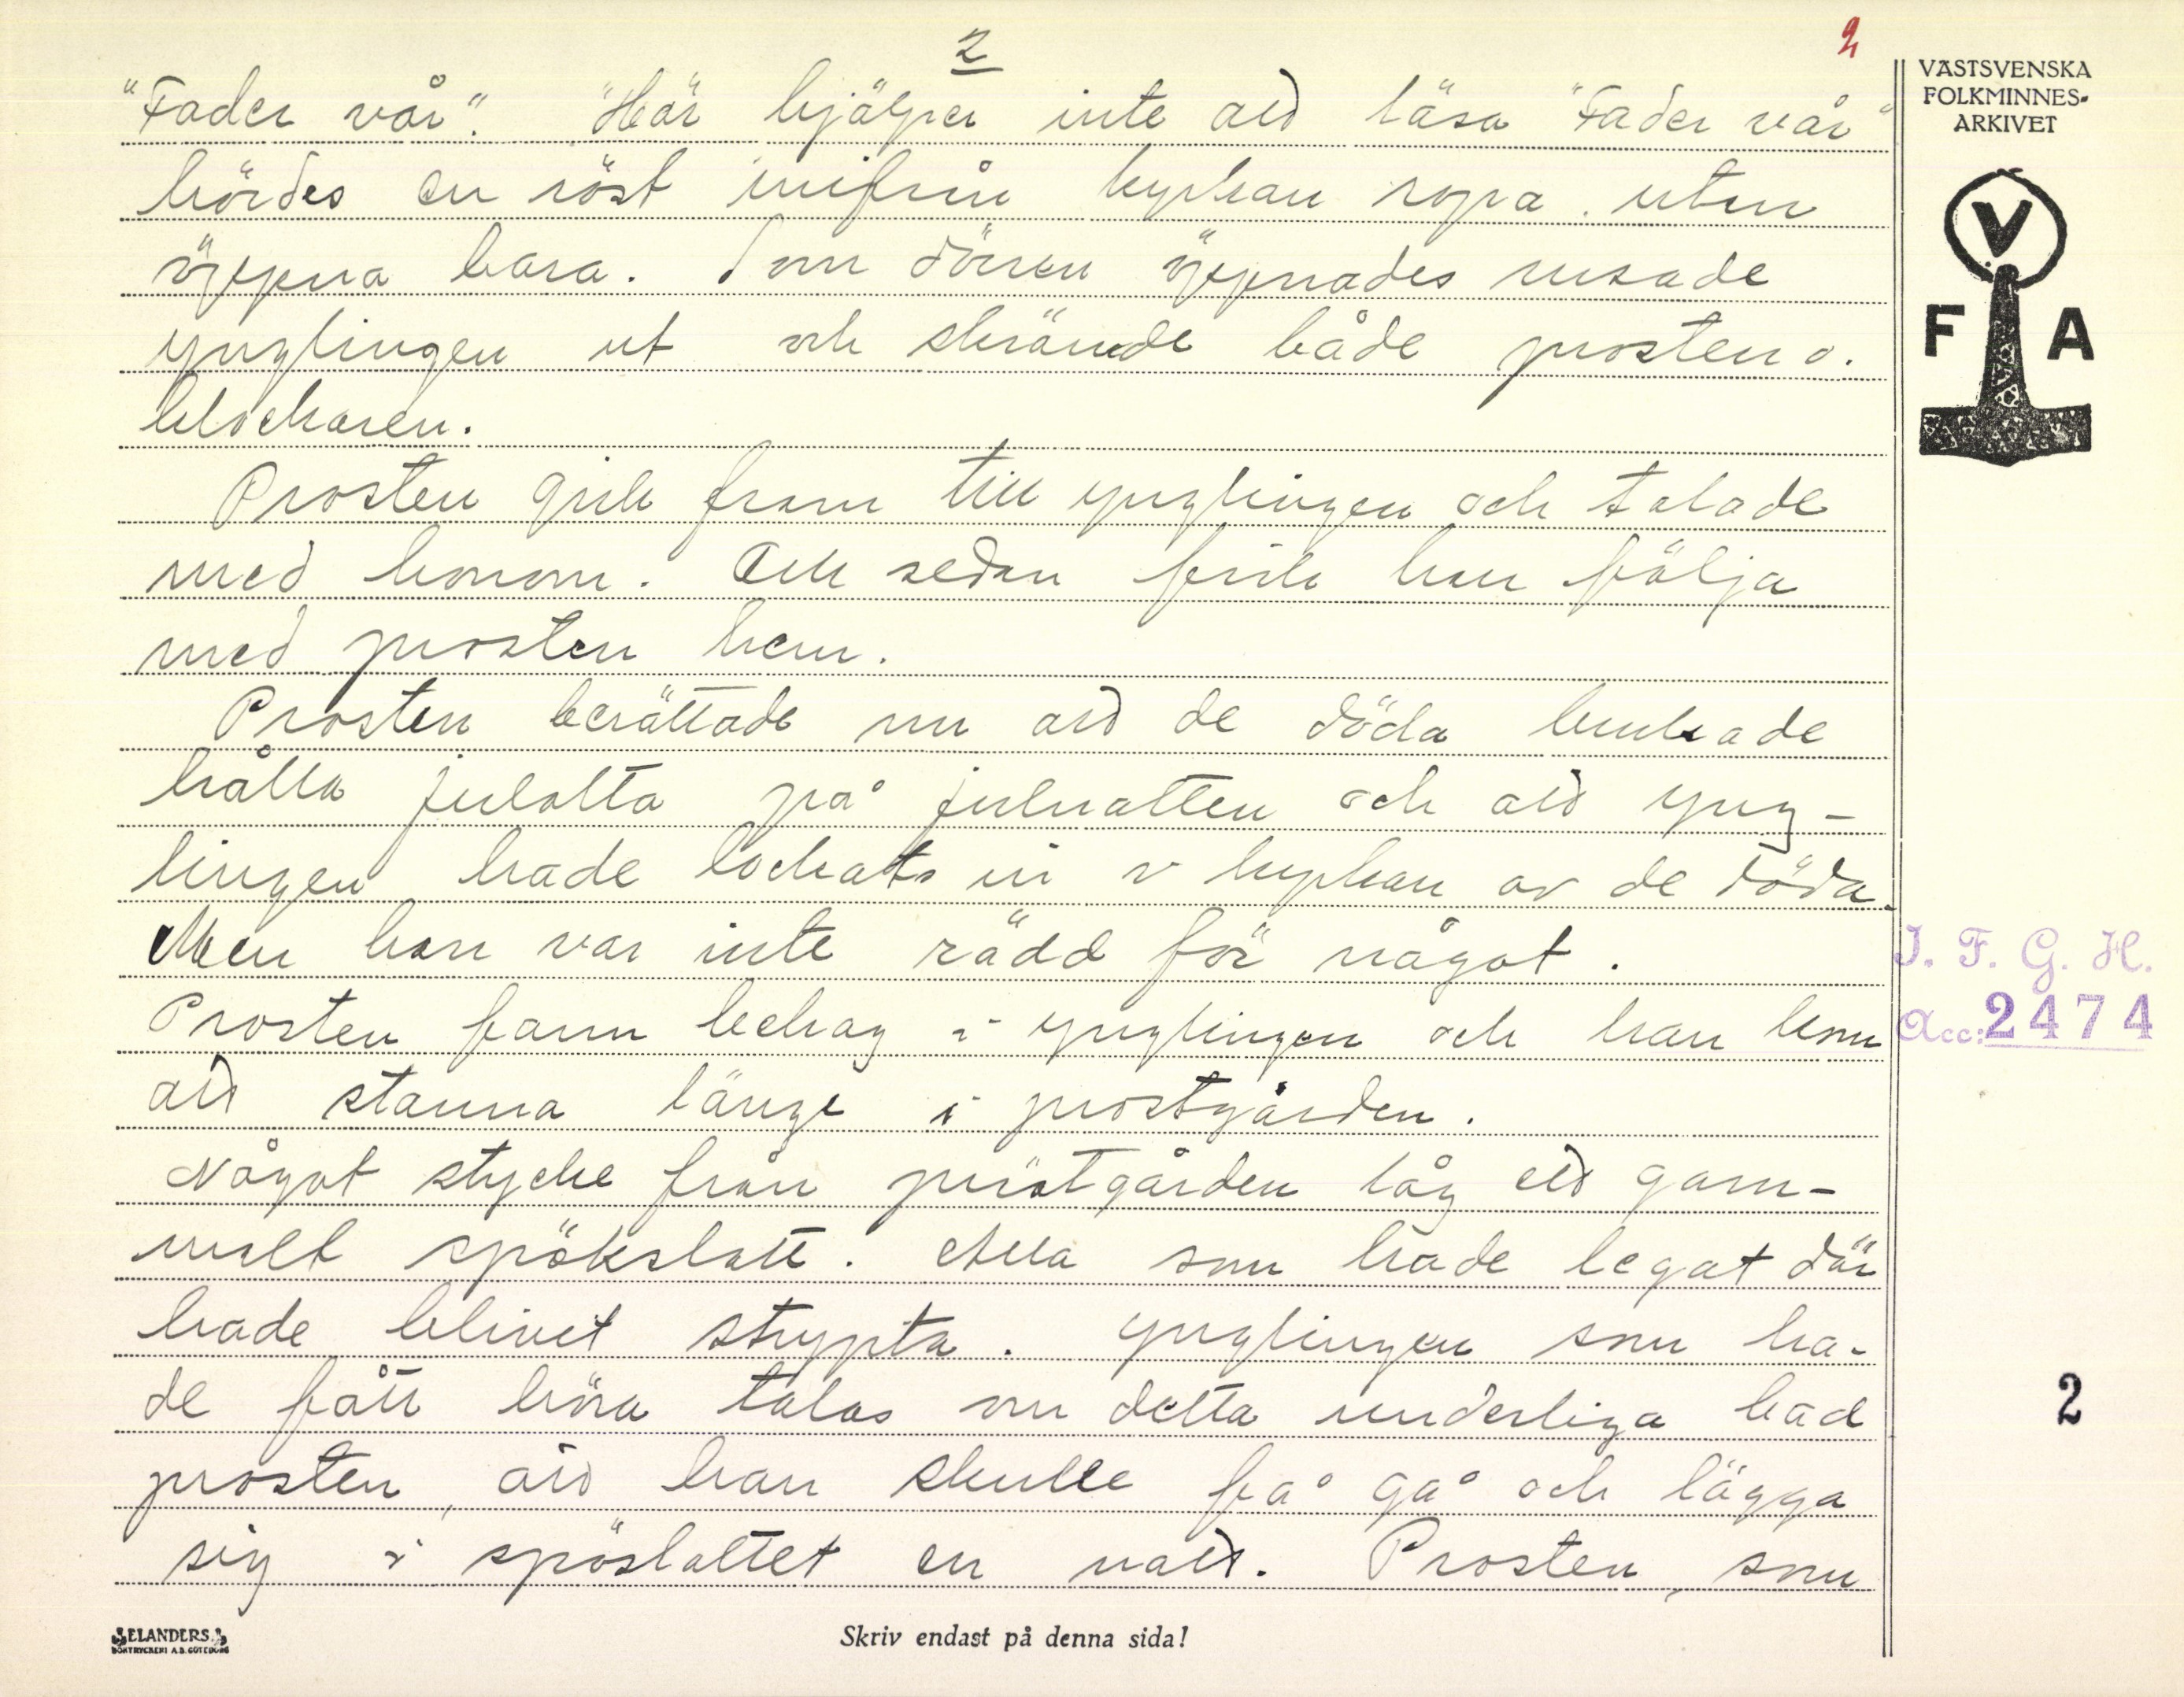 2
2
"Fader vår". "Här hjälper inte att läsa "Fader vår"
hördes en röst inifrån kyrkan ropa. utan
öppna bara. Som dörren öppnades rusade
ynglingen ut och skrämde både prosten o.
klockaren.
Prosten gick fram till ynglingen och talade
med honom. Och sedan fick han följa
med prosten hem.
Prosten berättade nu att de döda brukade
hålla julotta på julnatten och att yng-
lingen hade lockats in i kyrkan av de döda.
Men han var inte rädd för något.
Prosten fann behag i ynglingen och han kom
att stanna länge i prostgården.
Något stycke från prästgården låg ett gam-
malt spökslott. Alla som hade legat där
hade blivit strypta. Ynglingen som ha-
de fått höra talas om detta underliga bad
prosten, att han skulle få gå och lägga
sig i spöslottet en natt. Prosten, som
VÄSTSVENSKA
FOLKMINNES-
ARKIVET
V
F A
I. F. G. H.
Acc: 2474
2
ELANDERS
BOKTRYCKERI A.B. GÖTEBORG
Skriv endast på denna sida!